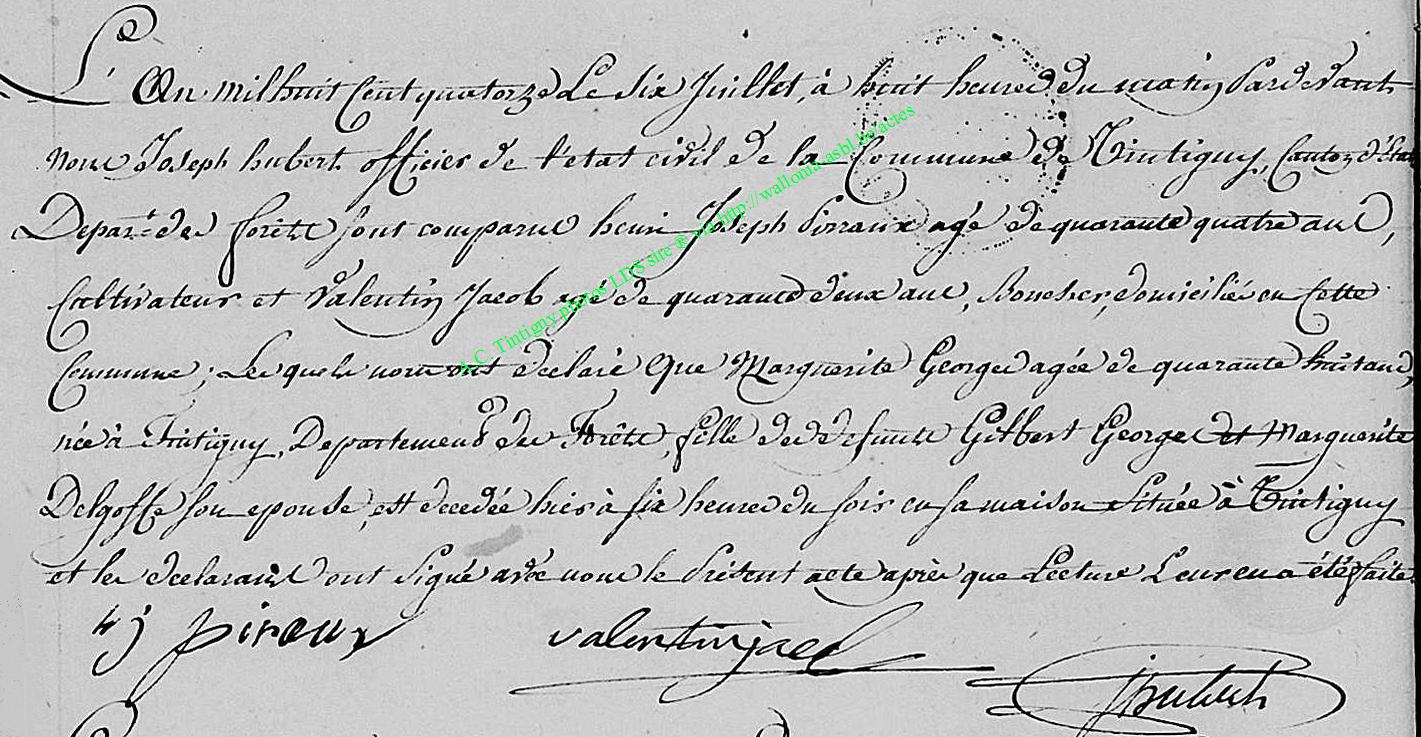 L'An mil huit Cent quatorze Le Six Juillet, à huit heures du matin Pardevant
nous Joseph hubert officier de l'état civil de la Commune de Tintigny, Canton d'Etal
Depart.t des forêts sont comparus henri Joseph Pirraux agé de quarante quatre ans,
Cultivateur et Valentin Jacob agé de quarante deux ans, Boucher, domiciliés en Cette
Commune; Lesquels nous ont declaré Que Marguerite Georges agée de quarante huit ans,
née à Tintigny, Departement des Forêts, fille de defunts Gilbert Georges et Marguerite
Delgoffe son epouse, est decedée hier à six heures du soir en sa maison Située à Tintigny
et les declarants ont Signé avec nous le Présent acte après que Lecture Leur en a été faite.
hj piraux valentin jacob
J hubert
A.C. Tintigny photos LDS site ® via http://wallonia-asbl.be/actes